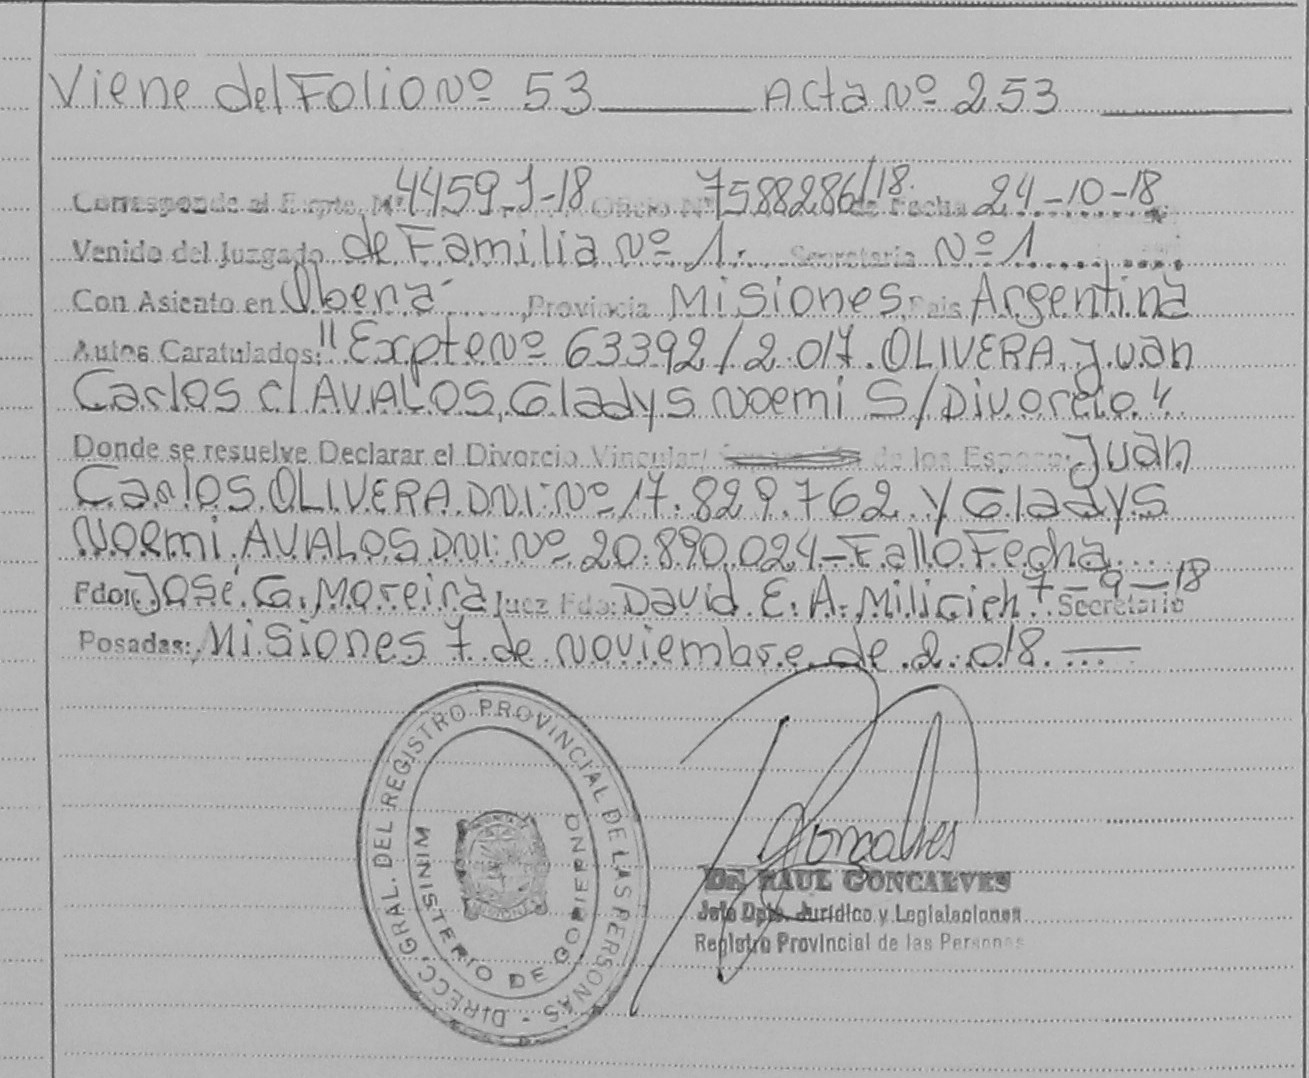 Viene del Folio Nº 53 Acta Nº 253
Corresponde al Expte. Nº 4459-J-18 Oficio Nº 7588286/18. de Fecha 24-10-18
Venido del Juzgado de Familia Nº 1. Secretaria Nº 1
Con Asiento en Obera Provincia Misiones Pais Argentina
Autos Caratulados: "Expte Nº 63392/2.017. OLIVERA, Juan
Carlos c/ AVALOS, Gladys Noemi S/ Divorcio."
Donde se resuelve Declarar el Divorcio Vincular/ de los Esposo: Juan
Carlos OLIVERA DNI: Nº 17.829.762 y Gladys
Noemi AVALOS DNI: Nº 20.890.024 - Fallo Fecha
7-9-18
Fdo: José G. Moreira Juez Fdo: David E. A. Milicich Secretario
Posadas: Misiones 7 de Noviembre de 2.018.
DIRECC. GRAL. DEL REGISTRO PROVINCIAL DE LAS PERSONAS
MINISTERIO DE GOBIERNO
Goncalves
Dr. RAUL GONCALVES
Jefe Dpto. Jurídico y Legislaciones
Registro Provincial de las Personas